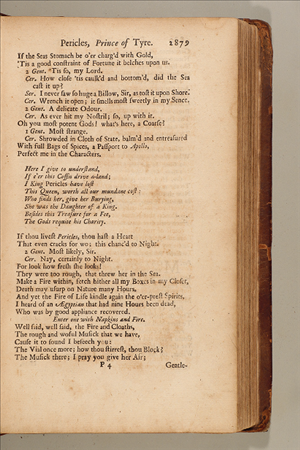 Pericles, Prince of Tyre. 2879
If the Seas Stomach be o'er charg'd with Gold,
'Tis a good constraint of Fortune it belches upon us.
2 Gent. 'Tis so, my Lord.
Cer. How close 'tis caulk'd and bottom'd, did the Sea
cast it up?
Ser. I never saw so huge a Billow, Sir, as tost it upon Shore.
Cer. Wrench it open; it smells most sweetly in my Sence.
2 Gent. A delicate Odour.
Cer. As ever hit my Nostril; so, up with it.
Oh you most potent Gods! what's here, a Coarse?
1 Gent. Most strange.
Cer. Shrowded in Cloth of State, balm'd and entreasured
With full Bags of Spices, a Passport to Apollo,
Perfect me in the Characters.
Here I give to understand,
If e'er this Coffin drive a-land;
I King Pericles have lost
This Queen, worth all our mundane cost:
Who finds her, give her Burying,
She was the Daughter of a King.
Besides this Treasure for a Fee,
The Gods requite his Charity.
If thou livest Pericles, thou hast a Heart
That even cracks for wo; this chanc'd to Night.
2 Gent. Most likely, Sir.
Cer. Nay, certainly to Night.
For look how fresh she looks!
They were too rough, that threw her in the Sea.
Make a Fire within, fetch hither all my Boxes in my Closet,
Death may usurp on Nature many Hours,
And yet the Fire of Life kindle again the o'er-prest Spirits,
I heard of an Ægyptian that had nine Hours been dead,
Who was by good appliance recovered.
Enter one with Napkins and Fire.
Well said, well said, the Fire and Cloaths,
The rough and woful Musick that we have,
Cause it to sound I beseech you:
The Vial once more; how thou stirrest, thou Block?
The Musick there; I pray you give her Air;
P 4 Gentle-